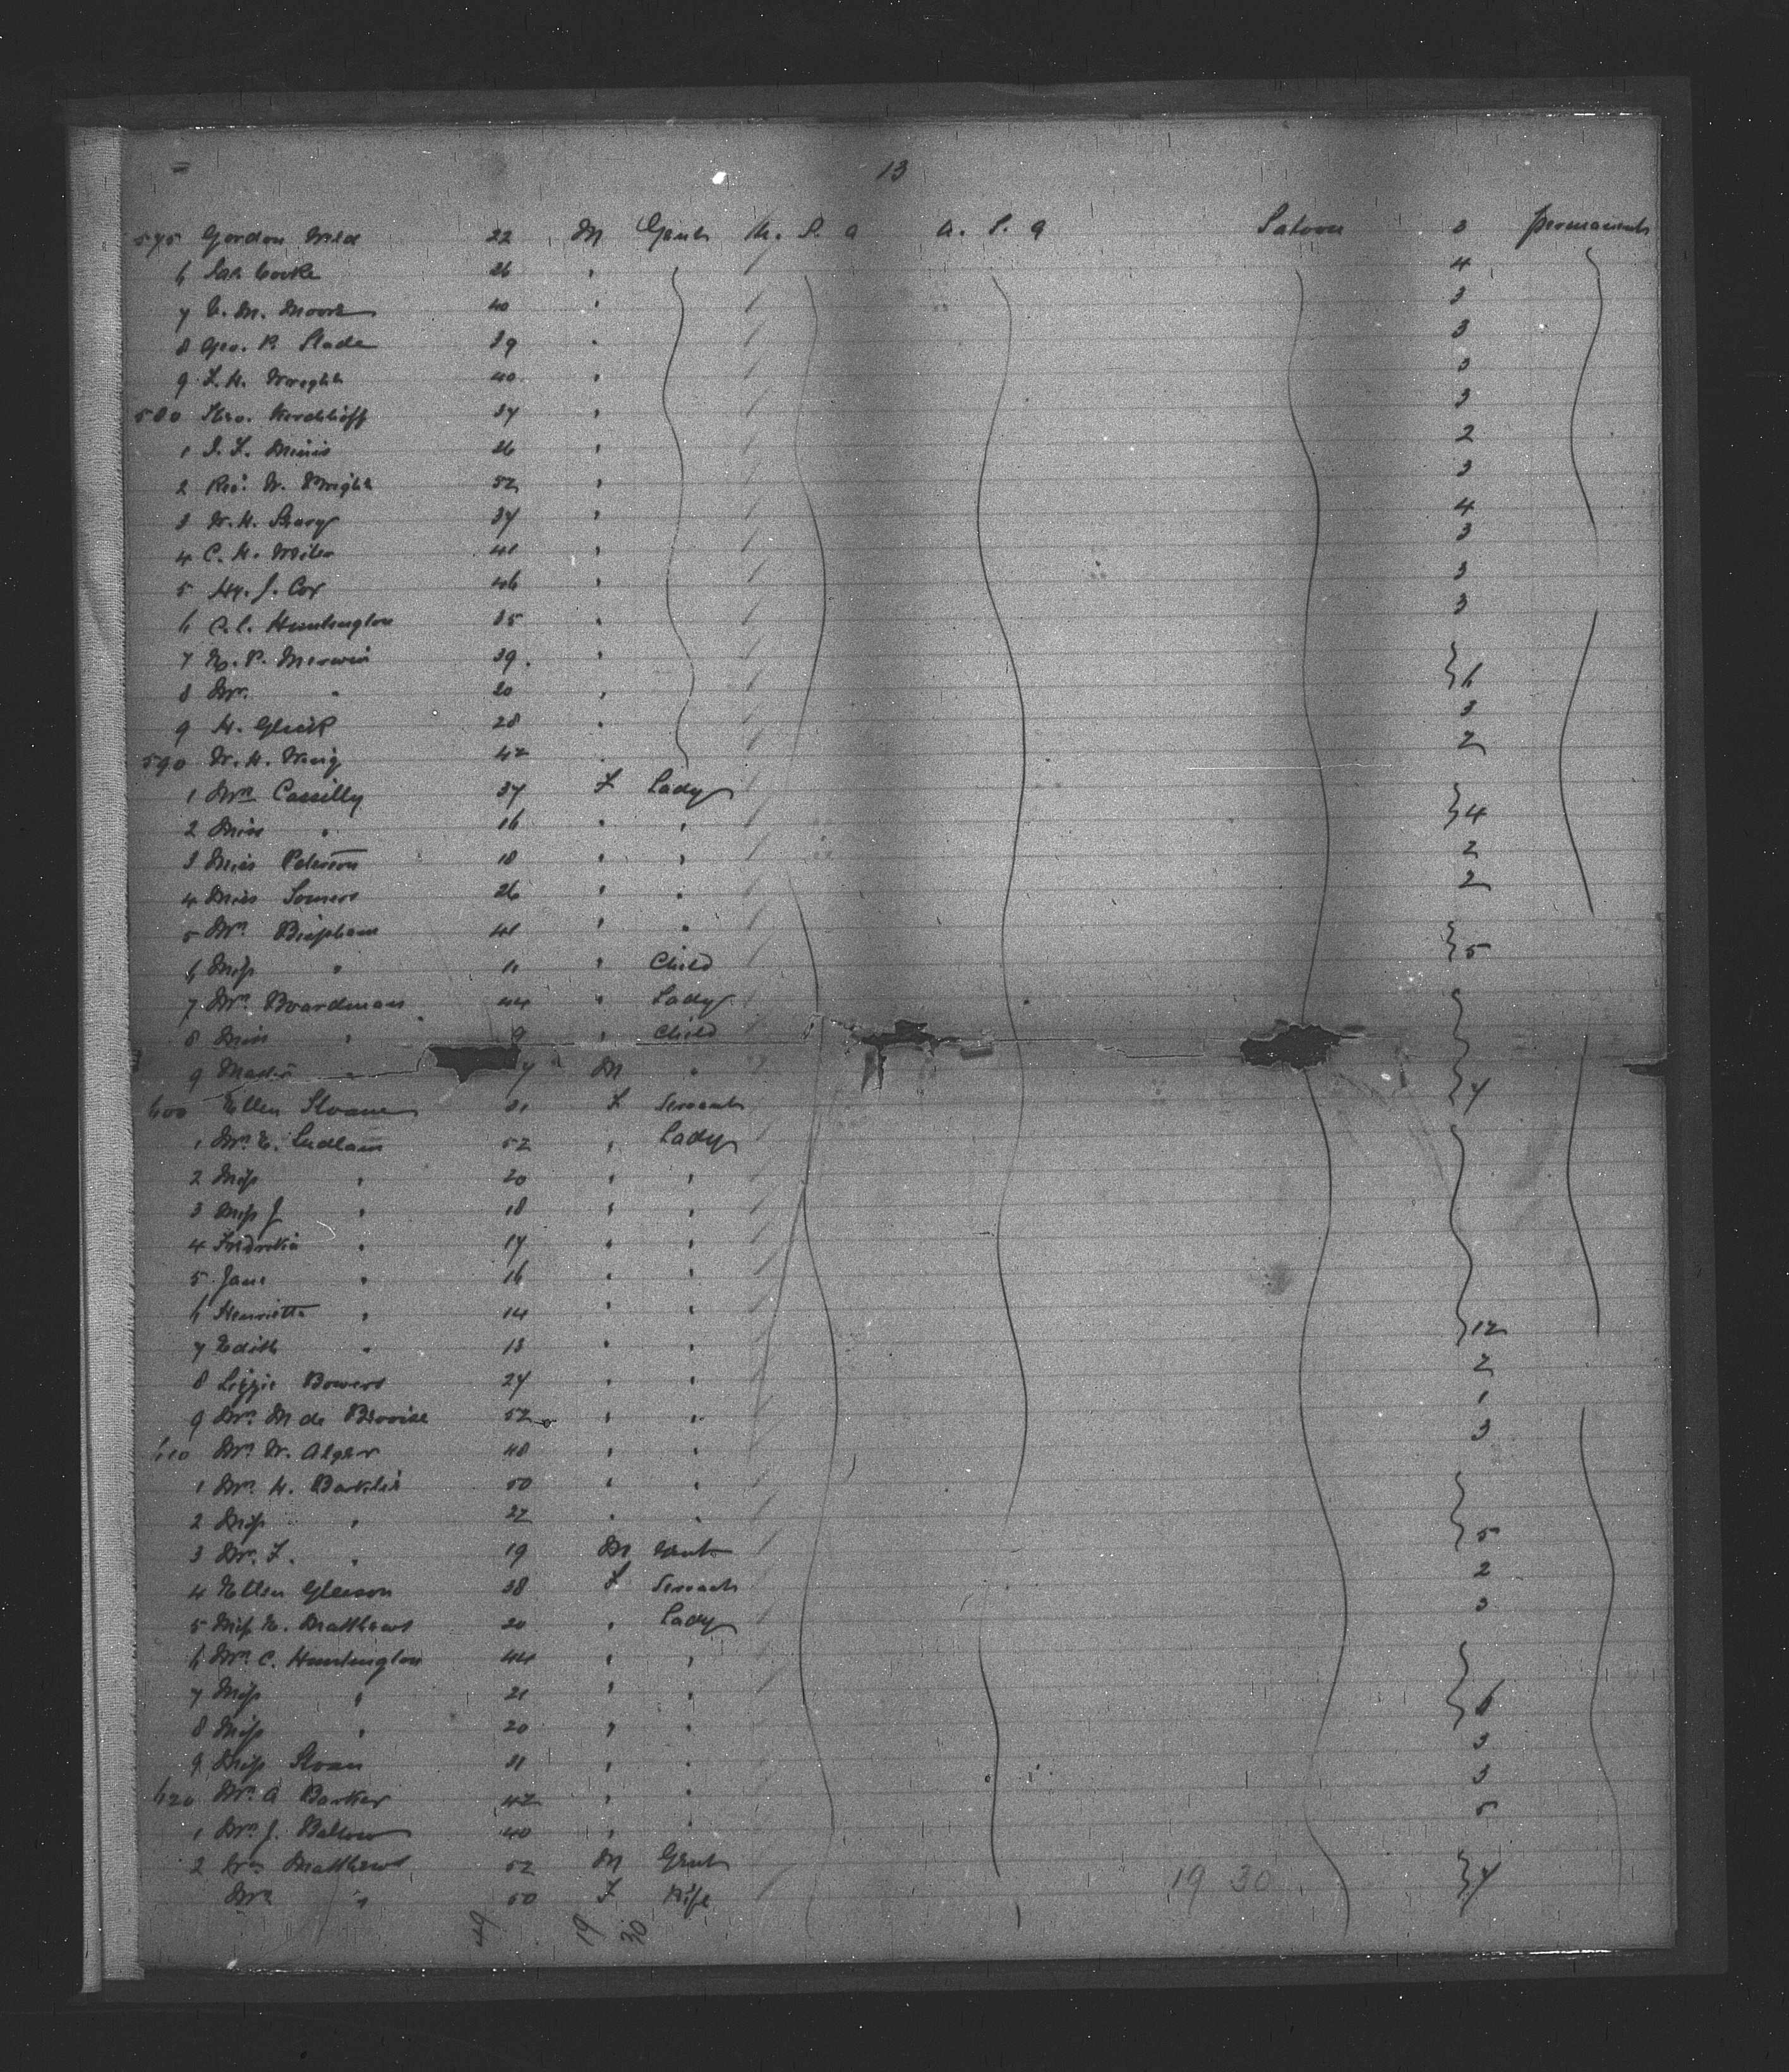 13
575 Gordon Wild 22 M Gent U. S. A U. S. A Saloon 3 permanent
6 Cooke 26 " 4
7 C. M. Moore 40 " 3
8 Geo. P. Slade 39 " 3
9 F. H. Wright 40 " 3
580 Theo. Kirchhoff 37 " 3
1 J. F. Minis 26 " 2
2 Rev. W. Wright 52 " 3
3 W. H. 37 " 4
4 C. H. 41 " 3
5 J. Cox 46 " 3
6 C. C. Huntington 35 " 3
7 E. P. Merwin 39 "
8 Mr. " 20 " 6
9 H. Glück 28 " 3
590 W. H. Wing 42 2
1 Mrs Cassilly 37 F Lady
2 Miss " 16 " " 4
3 Miss 18 " " 2
4 Miss Somers 26 " " 2
5 Mrs Bispham 41 " "
6 Miss " 11 " Child 5
7 Mrs Boardman 44 " Lady
8 Miss " 9 " Child
9 Master " 7 M "
600 Ellen Sloane 31 F Servant 7
1 Mrs E. Ludlam 52 " Lady
2 Miss " 20 " "
3 Miss J " 18 " "
4 " 17 " "
5 Jane " 16 " "
6 Henrietta " 14 " "
7 Edith " 13 " " 12
8 Lizzie Bowers 24 " " 2
9 Mrs M de 52 " " 1
610 Mrs W. Alger 48 " " 3
1 Mrs H. 50 " "
2 Miss " 22 " "
3 Mr. F. " 19 M Gent 5
4 Ellen Gleason 38 F Servant 2
5 Miss E. Matthews 20 " Lady 3
6 Mrs C. Huntington 44 " "
7 Miss " 21 " "
8 Miss " 20 " " 6
9 Miss Sloan 31 " " 3
620 Mrs A Barker 42 " " 3
1 Mrs J. 40 " " 5
2 Matthews 52 M Gent
Mrs " 50 F Wife 7
19 30
49 19 30